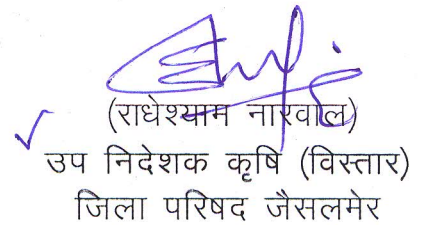 (राधेश्याम नारवाल)
उप निदेशक कृषि (विस्तार)
जिला परिषद जैसलमेर